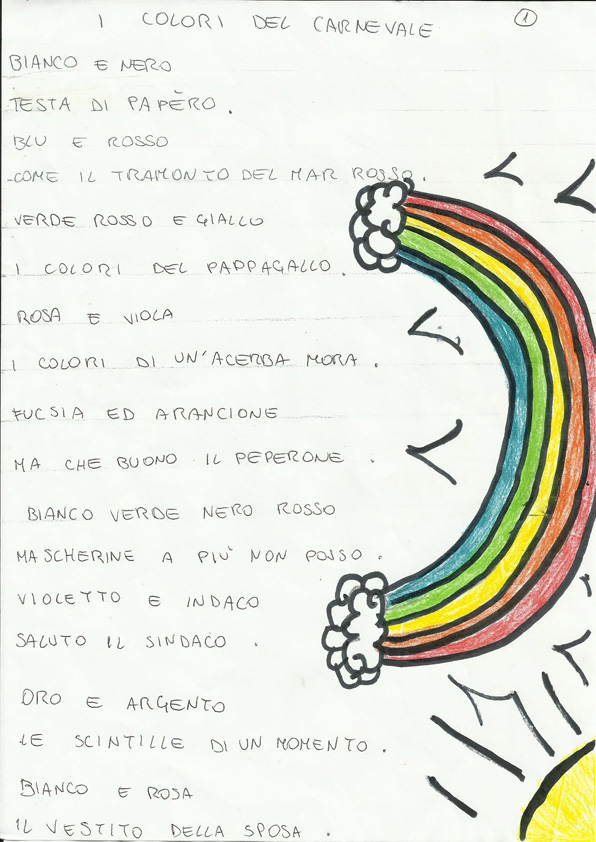 I COLORI DEL CARNEVALE
1
BIANCO E NERO
TESTA DI PAPÈRO.
BLU E ROSSO
COME IL TRAMONTO DEL MAR ROSSO.
VERDE ROSSO E GIALLO
I COLORI DEL PAPPAGALLO.
ROSA E VIOLA
I COLORI DI UN'ACERBA MORA.
FUCSIA ED ARANCIONE
MA CHE BUONO IL PEPERONE.
BIANCO VERDE NERO ROSSO
MASCHERINE A PIÙ NON POSSO.
VIOLETTO E INDACO
SALUTO IL SINDACO.
ORO E ARGENTO
LE SCINTILLE DI UN MOMENTO.
BIANCO E ROSA
IL VESTITO DELLA SPOSA.